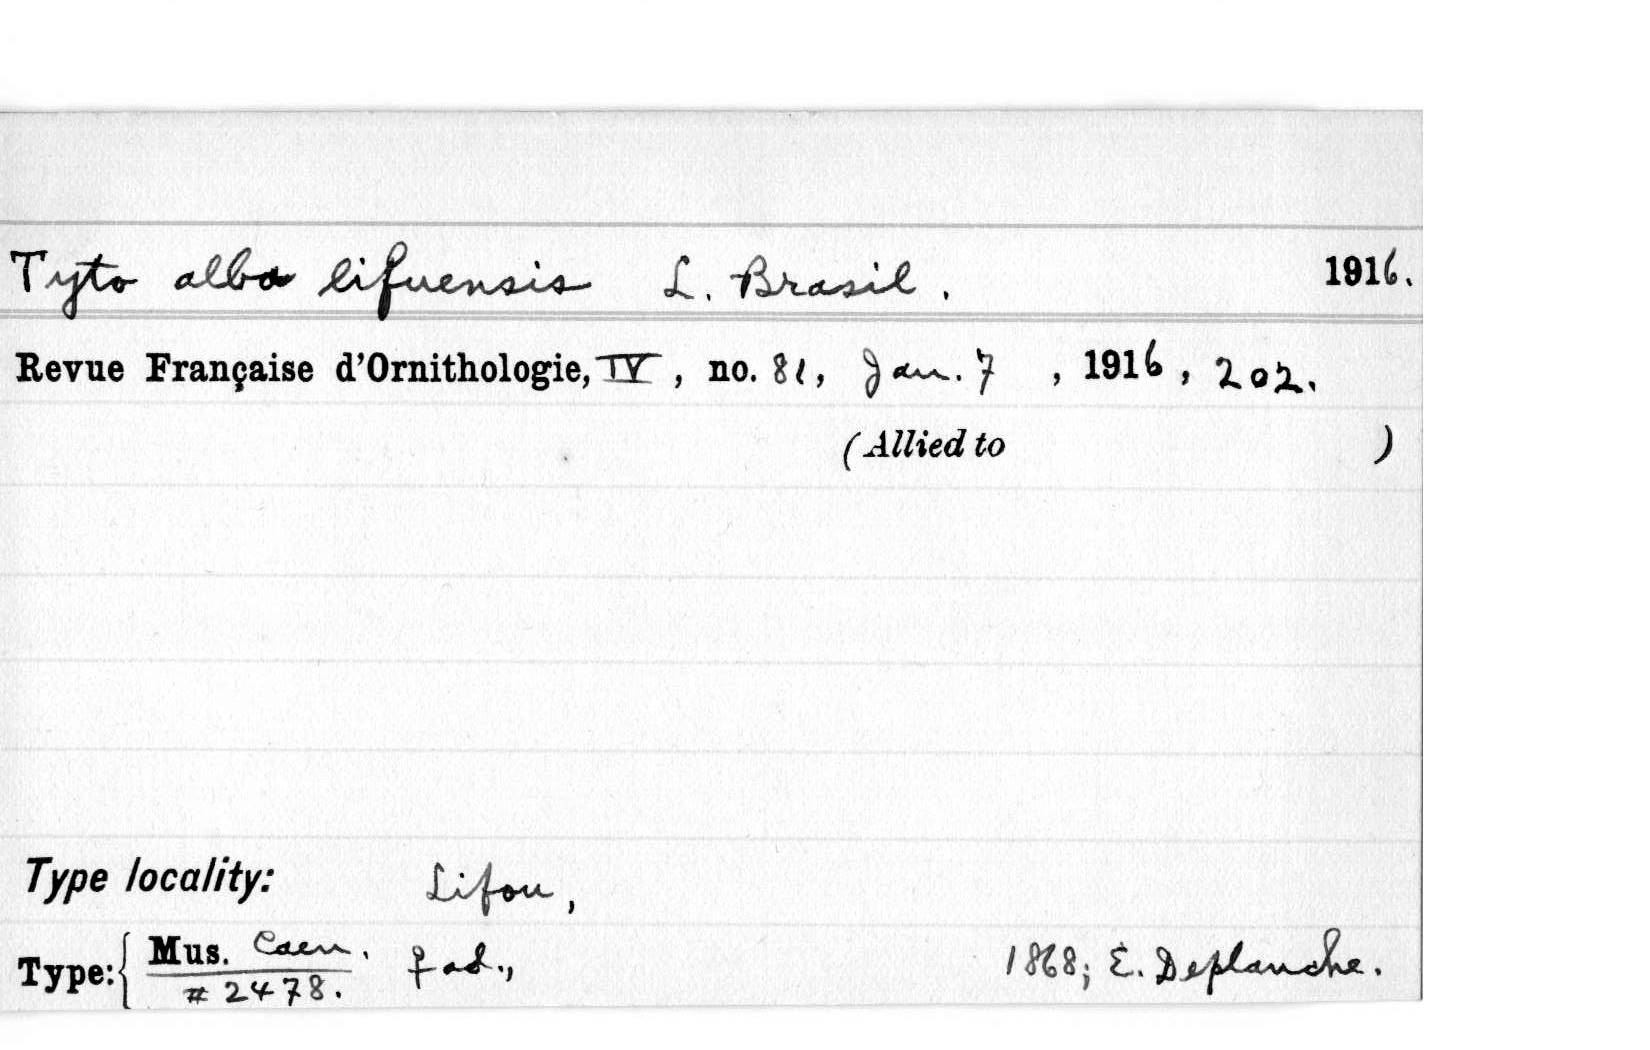 Tyto alba lifuensis L. Brasil. 1916.
Revue Française d'Ornithologie, IV, no. 81, Jan. 7, 1916, 202.
(Allied to )
Type locality: Lifou,
Type: { Mus. Caen. ♀ ad., 1868; E. Deplanche.
# 2478.